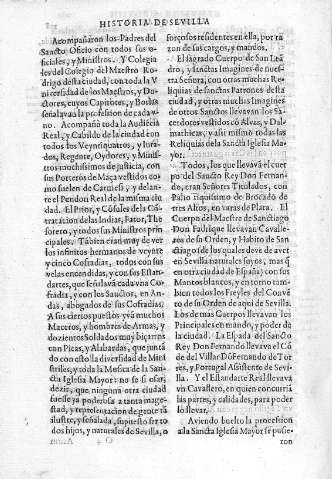 HISTORIA DE SEVILLA
Acompañaron los Padres del
Sancto Oficio con todos sus o-
ficiales, y Ministros. Y Colegio
del Colegio del Maestro Ro-
drigo desta ciudad, con toda la V
niversidad de los Maestros, y Do-
ctores, cuyos Capirotes, y Borlas
señalava la profession de cada v-
no. Acompañó toda la Audiécia
Real, y Cabildo de la ciudad con
todos los Veyntiquatros, y Iura-
dos, Regente, Oydores, y Minis-
tros muchissimos de justicia, con
sus Porteros de Maça vestidos co-
mo suelen de Carmesi, y delan-
te el Pendon Real de la misma ciu
dad. El Prior, y Cósules de la Có-
tratacion de las Indias, Fator, The
sorero, y todos sus Ministros prin
cipales. Tábien eran muy de ver
los infinitos hermanos de veynte
y cinco Cofradias, todos con sus
velas encendidas, y con sus Estan-
dartes, que señalava cada vna Co-
fradia, y con los Sanctos, en An-
das, abogados de sus Cofradias.
A sus ciertos puestos yvá muchos
Maceros, y hombres de Armas, y
dozientos Soldados muy bizarros
con Picas, y Alabardas, que junta
do con esto la diversidad de Mini
striles, y toda la Musica de la San
cta Iglesia Mayor: no se si osar,
dezir, que ninguna otra ciudad
fuesse ya poderosa a tanta mage-
stad, y representacion de gente ta
ilustre, y señalada, supuesto ser to
dos hijos, y naturales de Sevilla, o
forçosos residentes en ella, por ra
zon de sus cargos, y mandos.
El sagrado Cuerpo de San Lea
dro, y sanctas Imagines de nues-
tra Señora, con otras muchas Re-
liquias de sanctas Patronas desta
ciudad, y otras muchas Imagines
de otros Sanctos llevavan los Sa-
cerdotes vestidos có Alvas, y Dal-
maticas, y asi mismo todas las
Reliquias de la Sancta Iglesia Ma-
yor.
Todos, los que llevavá el cuer
po del Sancto Rey Don Fernan-
do, eran Señores Titulados, con
Palio riquissimo de Brocado de
tres Altos, en varas de Plata. El
Cuerpo del Maestre de Sanctiago
Don Fadrique llevavan Cavalle-
ros de su Orden, y Habito de San
ctiago (de los quales deve de aver
en Sevilla naturales suyos, mas q̃
en otra ciudad de España) con sus
Mantos blancos, y en torno tam-
bien todos los Freyles del Conve
to de su Orden de aqui de Sevilla.
Los de mas Cuerpos llevavan los
Principales en mando, y poder de
la ciudad. La Espada del Sancto
Rey Don Fernando llevava el Có
de del Villar Dó Fernando de Tor
res, y Portugal Asistente de Sevi-
lla. Y el Estandarte Real llevava
vn Cavallero, en quien concurriá
las partes, y calidades, para poder
lo llevar.
Aviendo buelto la procession
a la Sancta Iglesia Mayor se pusie-
ron